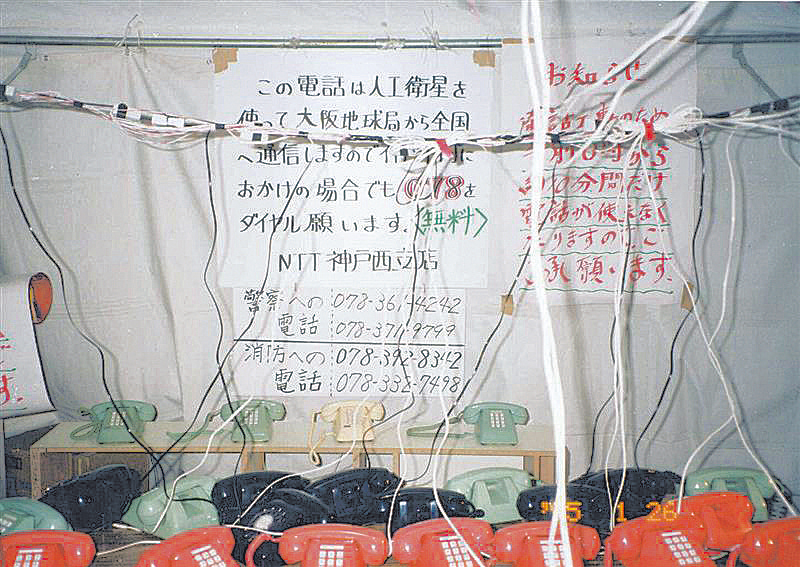 この電話は人工衛星を
使って大阪地球局から全国
へ通信しますので市内に
おかけの場合でも078を
ダイヤル願います.〈無料〉
NTT 神戸西支店
警察への 078-361-4242
電話 078-371-9799
消防への 078-392-8342
電話 078-338-7498
お知らせ
のため
から
分間だけ
電話が使えなく
なりますのでご
承願います.
す.
'95 1 26